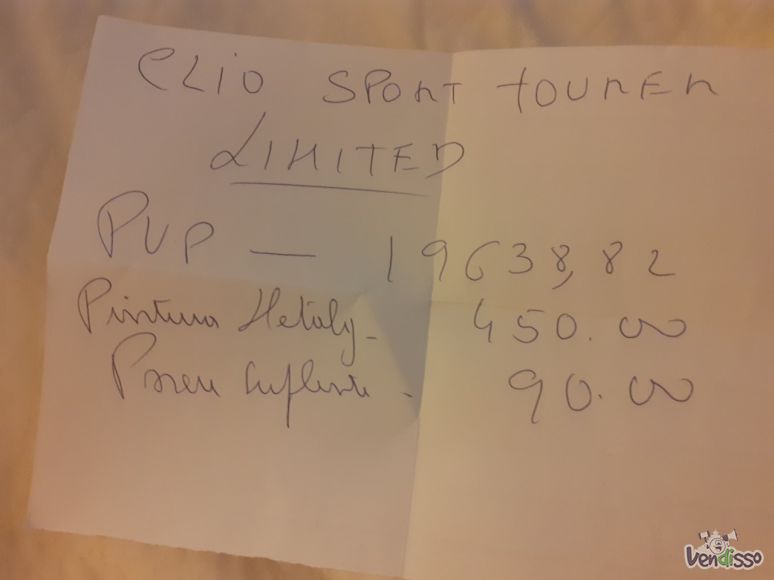 CLIO SPORT TOURER
LIMITED
PVP — 19638,82
Pintura Metaliz - 450.00
Pneu Suplente - 90.00
Vendisso